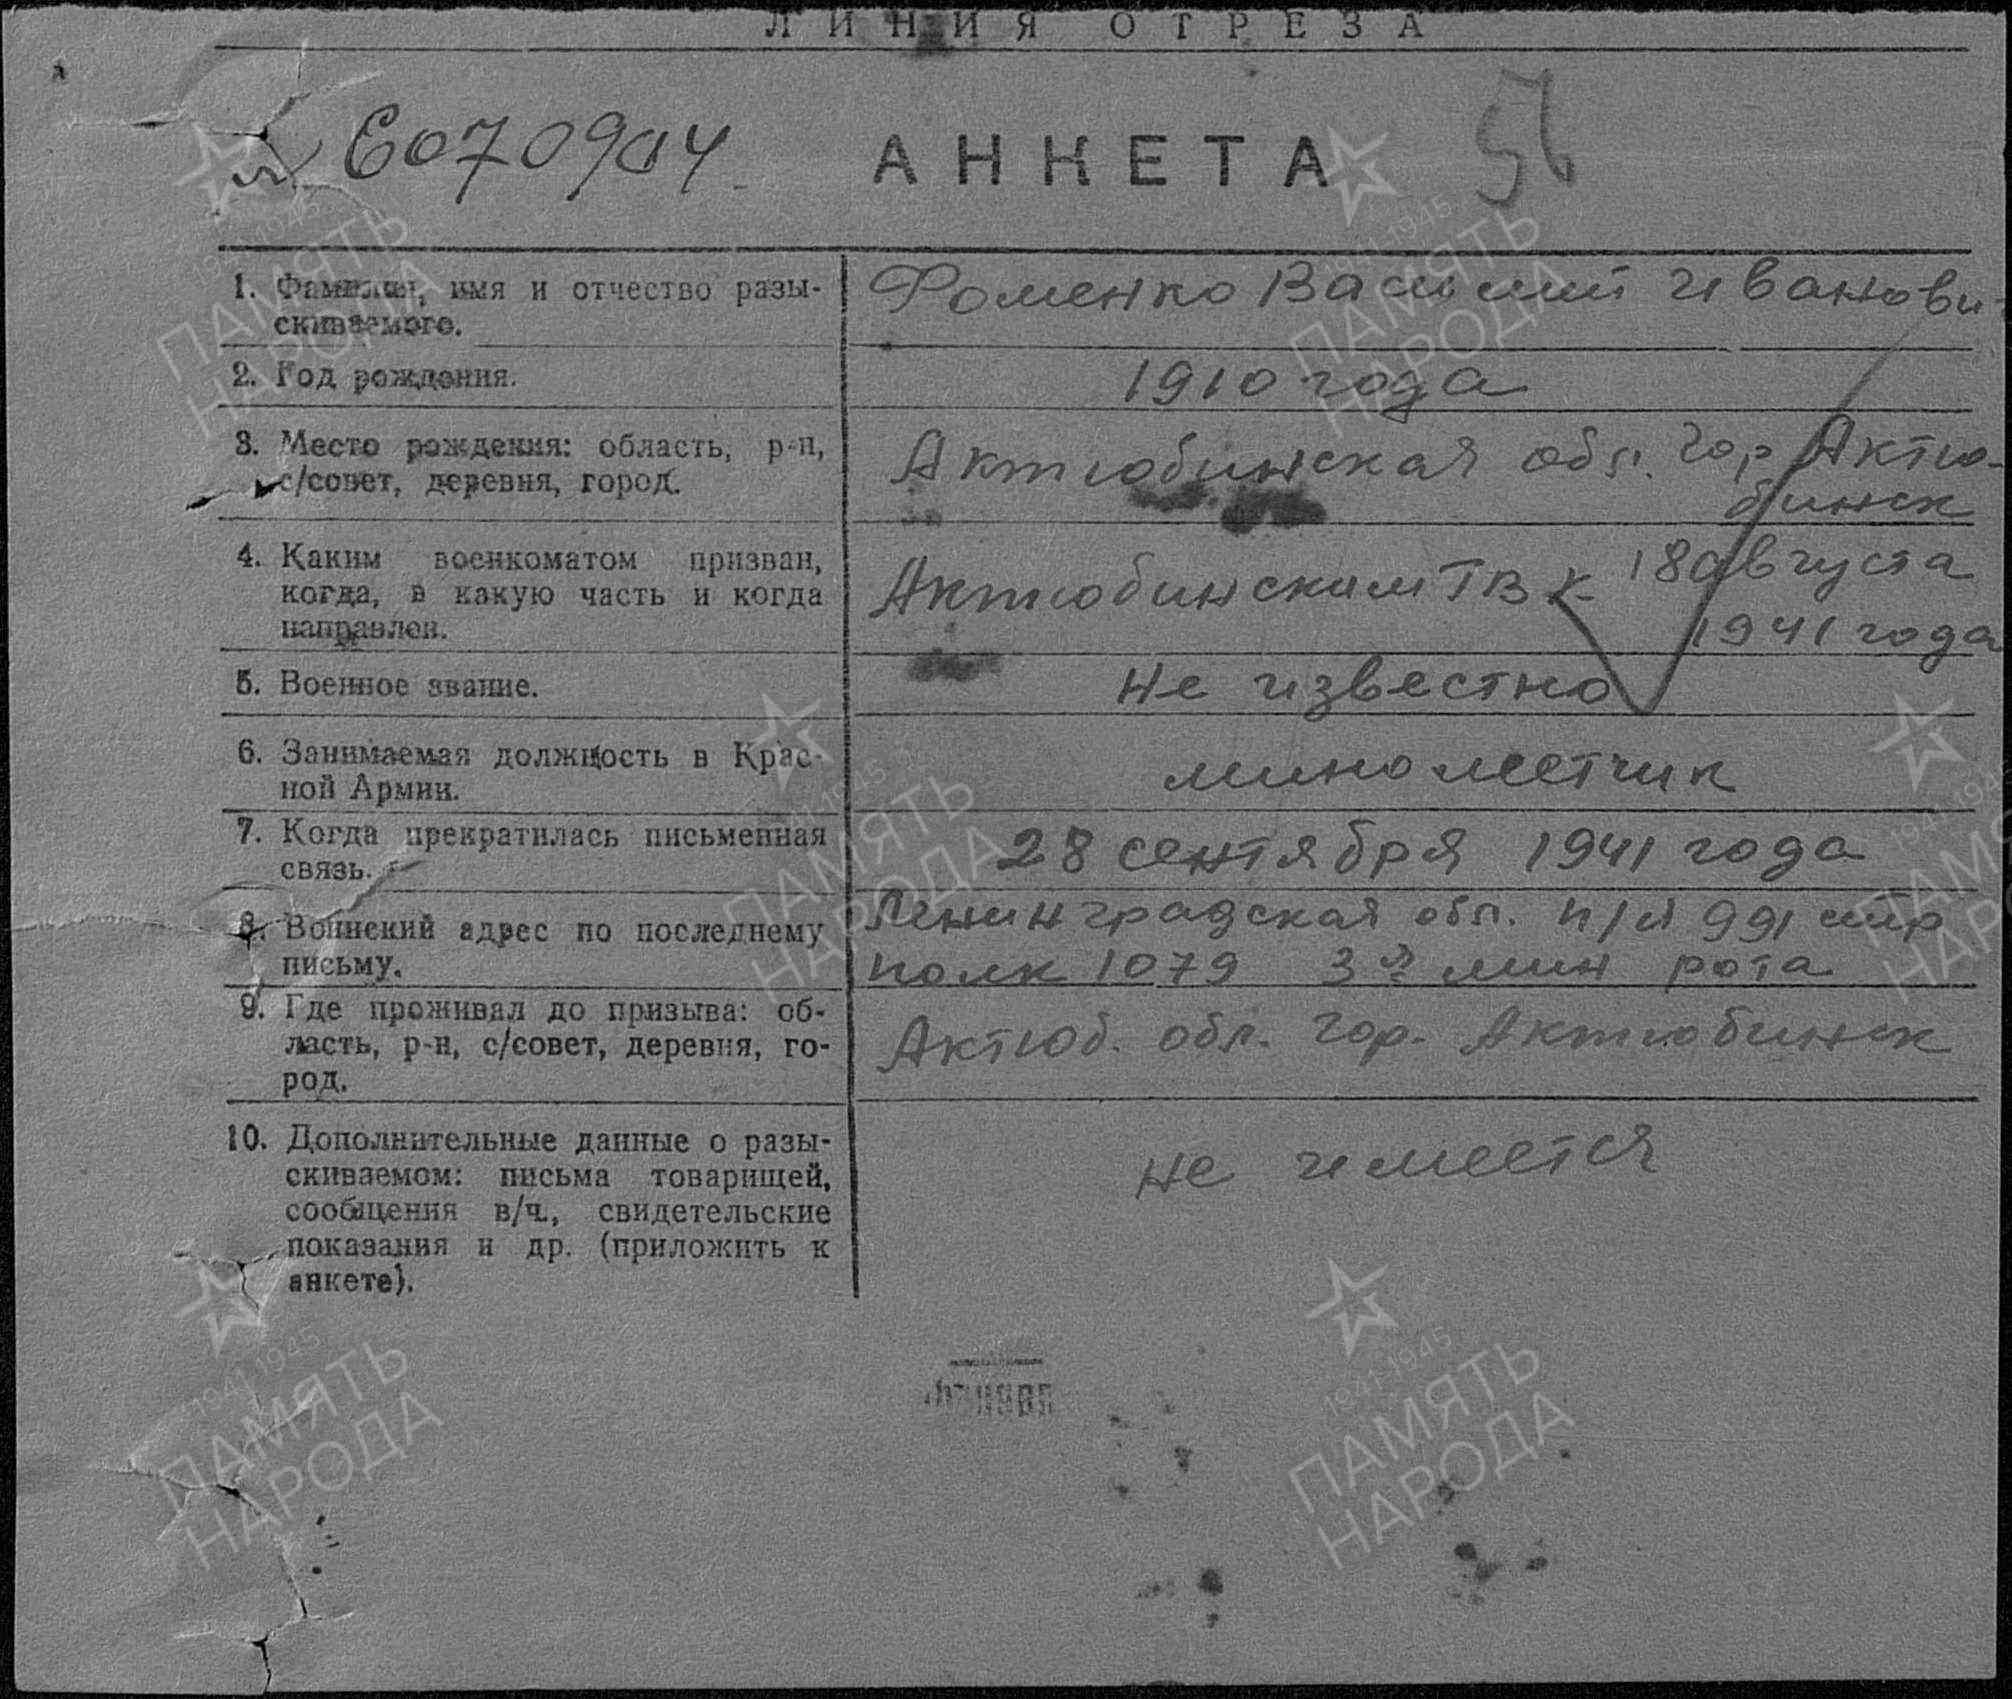 ЛИНИЯ ОТРЕЗА
6070904
АНКЕТА
56
1. Фамилия, имя и отчество разы-
скиваемого.
Фоменко Василий Иванови
2. Год рождения.
1910 года
3. Место рождения: область, р-н,
с/совет, деревня, город.
Актюбинская обл. гор Актю-
бинск
4. Каким военкоматом призван,
когда, в какую часть и когда
направлен.
Актюбинским ГВК 18 августа
1941 года
5. Военное звание.
не известно
6. Занимаемая должность в Крас-
ной Армии.
минометчик
7. Когда прекратилась письменная
связь.
28 сентября 1941 года
8. Воинский адрес по последнему
письму.
Ленинградская обл. п/я 991 стр
полк 1079 3я мин рота
9. Где проживал до призыва: об-
ласть, р-н, с/совет, деревня, го-
род.
Актюб. обл. гор. Актюбинск
10. Дополнительные данные о разы-
скиваемом: письма товарищей,
сообщения в/ч., свидетельские
показания и др. (приложить к
анкете).
не имеется
1941-1945
ПАМЯТЬ
НАРОДА
1941-1945
ПАМЯТЬ
НАРОДА
1941-1945
ПАМЯТЬ
НАРОДА
1941-1945
ПАМЯТЬ
НАРОДА
1941-1945
ПАМЯТЬ
НАРОДА